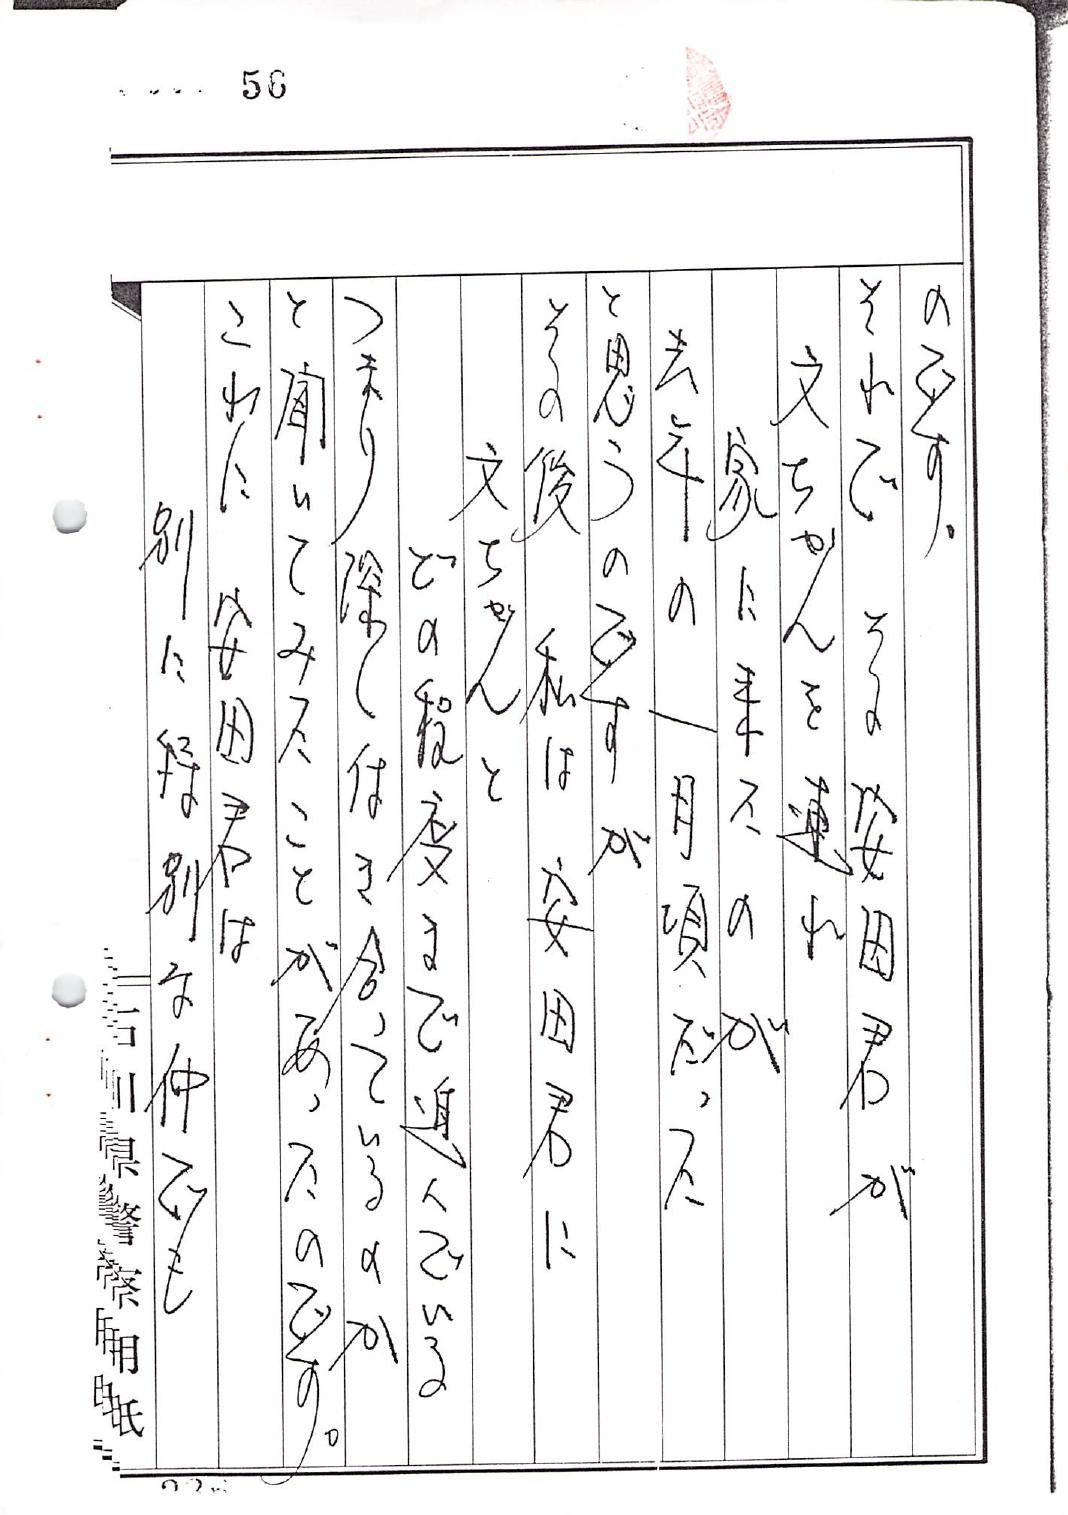 56
のです。
それで その安田君が
文ちゃんを連れ
家に来たのが
去年の一月頃だった
と思うのですが
その後 私は安田君に
文ちゃんと
どの程度まで進んでいるの
つまり深く付き合っているのか
と聞いてみたことがあったのです。
これに 安田君は
別に特別な仲でも
石川県警察用紙